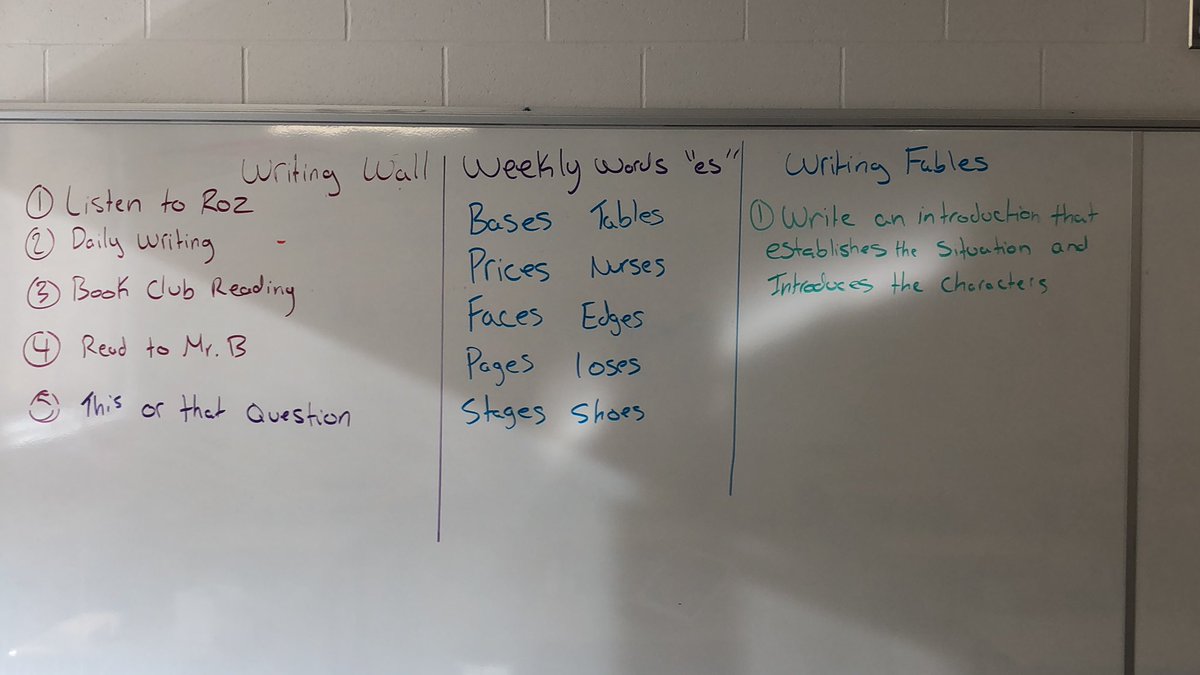 Writing Wall
① Listen to Roz
② Daily Writing
③ Book Club Reading
④ Read to Mr. B
⑤ This or that Question
Weekly Words "es"
Bases Tables
Prices Nurses
Faces Edges
Pages loses
Stages Shoes
Writing Fables
① Write an introduction that
establishes the Situation and
Introduces the Characters